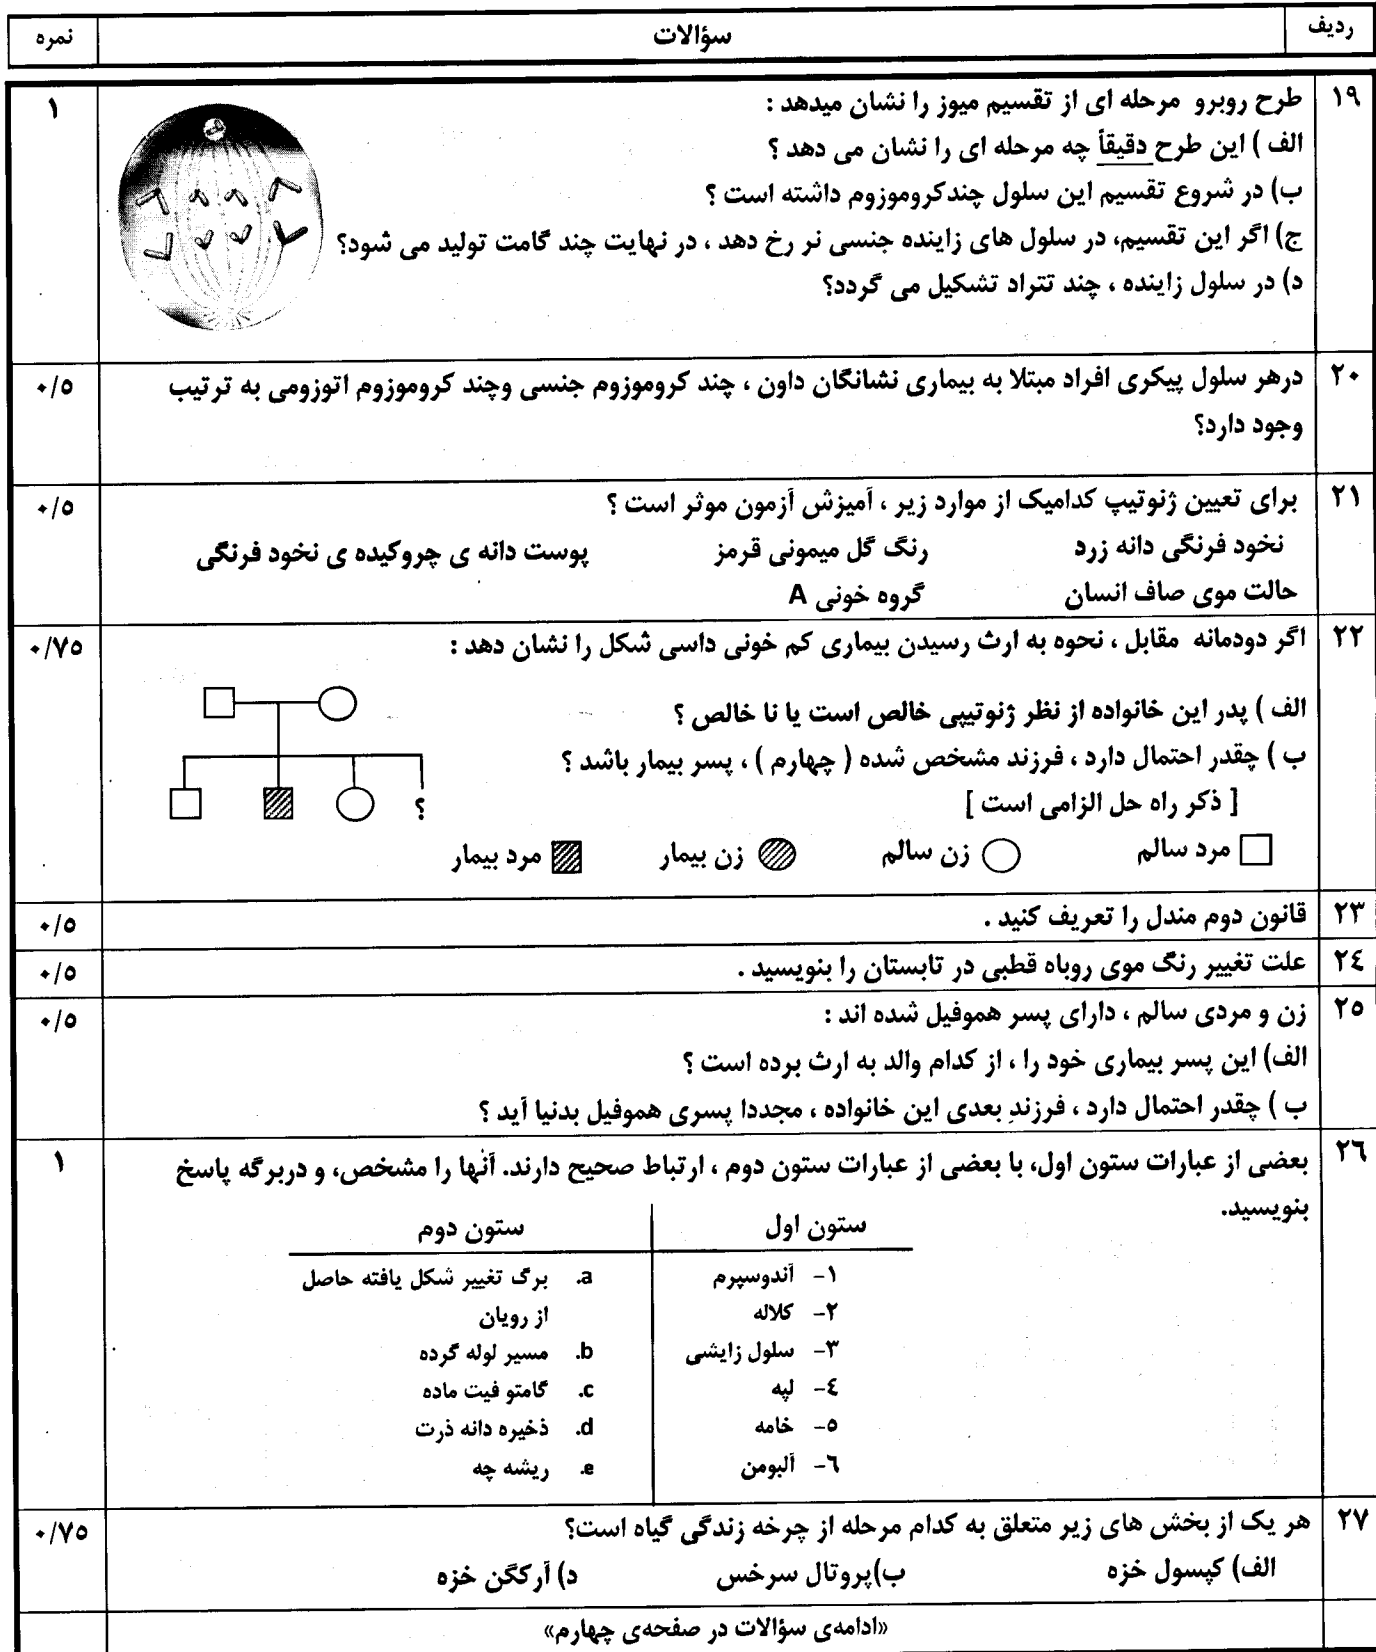 ردیف سؤالات نمره
۱۹ طرح روبرو مرحله ای از تقسیم میوز را نشان میدهد : ۱
الف ) این طرح دقیقاً چه مرحله ای را نشان می دهد ؟
ب) در شروع تقسیم این سلول چندکروموزوم داشته است ؟
ج) اگر این تقسیم، در سلول های زاینده جنسی نر رخ دهد ، در نهایت چند گامت تولید می شود؟
د) در سلول زاینده ، چند تتراد تشکیل می گردد؟
۲۰ درهر سلول پیکری افراد مبتلا به بیماری نشانگان داون ، چند کروموزوم جنسی وچند کروموزوم اتوزومی به ترتیب ۰/۵
وجود دارد؟
۲۱ برای تعیین ژنوتیپ کدامیک از موارد زیر ، آمیزش آزمون موثر است ؟ ۰/۵
نخود فرنگی دانه زرد رنگ گل میمونی قرمز پوست دانه ی چروکیده ی نخود فرنگی
حالت موی صاف انسان گروه خونی A
۲۲ اگر دودمانه مقابل ، نحوه به ارث رسیدن بیماری کم خونی داسی شکل را نشان دهد : ۰/۷۵
الف ) پدر این خانواده از نظر ژنوتیپی خالص است یا نا خالص ؟
ب ) چقدر احتمال دارد ، فرزند مشخص شده ( چهارم ) ، پسر بیمار باشد ؟
؟
[ ذکر راه حل الزامی است ]
مرد سالم زن سالم زن بیمار مرد بیمار
۲۳ قانون دوم مندل را تعریف کنید . ۰/۵
۲٤ علت تغییر رنگ موی روباه قطبی در تابستان را بنویسید . ۰/۵
۲۵ زن و مردی سالم ، دارای پسر هموفیل شده اند : ۰/۵
الف) این پسر بیماری خود را ، از کدام والد به ارث برده است ؟
ب ) چقدر احتمال دارد ، فرزندِ بعدی این خانواده ، مجددا پسری هموفیل بدنیا آید ؟
۲٦ بعضی از عبارات ستون اول، با بعضی از عبارات ستون دوم ، ارتباط صحیح دارند. آنها را مشخص، و دربرگه پاسخ ۱
بنویسید.
ستون اول ستون دوم
۱- آندوسپرم a. برگ تغییر شکل یافته حاصل
۲- کلاله از رویان
۳- سلول زایشی b. مسیر لوله گرده
٤- لپه c. گامتو فیت ماده
۵- خامه d. ذخیره دانه ذرت
٦- آلبومن e. ریشه چه
۲۷ هر یک از بخش های زیر متعلق به کدام مرحله از چرخه زندگی گیاه است؟ ۰/۷۵
الف) کپسول خزه ب)پروتال سرخس د) آرکگن خزه
«ادامه‌ی سؤالات در صفحه‌ی چهارم»